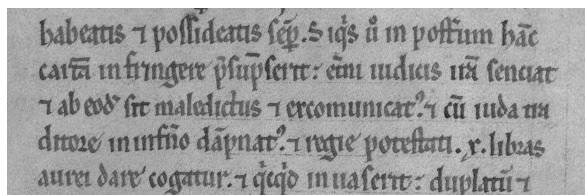 habeatis ⁊ possideatis sep̄. Siq̓s ů in post̄um hāc
cartā infringere p̄sūpserit: et̄ni iudicis irā senciat
⁊ ab eod̄ sit maledictus ⁊ excomunicat᷒. ⁊ cū iuda tra
ditore in inf̄no dāpnat᷒. ⁊ regie potestati. x. libras
aurei dare cogatur. ⁊ q̓cq̓d inuaserit: duplatū ⁊